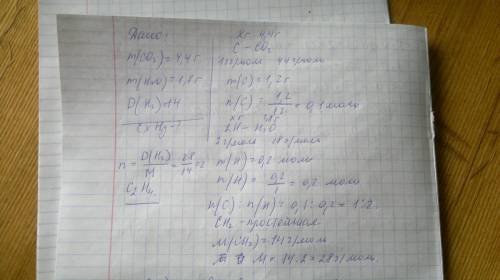 Дано:
m(CO2)=4,4г
m(H2O)=1,8г
D(H2)=14
CxHy-?
n = D(H2)/M = 28/14 = 2
C2H4.
Xг 4,4г
C - CO2
12г/моль 44г/моль
m(C)=1,2г
n(C) = 1,2/12 = 0,1 моль
xг 1,8г
2H - H2O
2г/моль 18г/моль
m(H)=0,2 моль
n(H) = 0,2/1 = 0,2 моль
n(C):n(H)=0,1:0,2=1:2.
CH2 - простейшая
M(CH2)=14г/моль
M = 14·2=28г/моль.